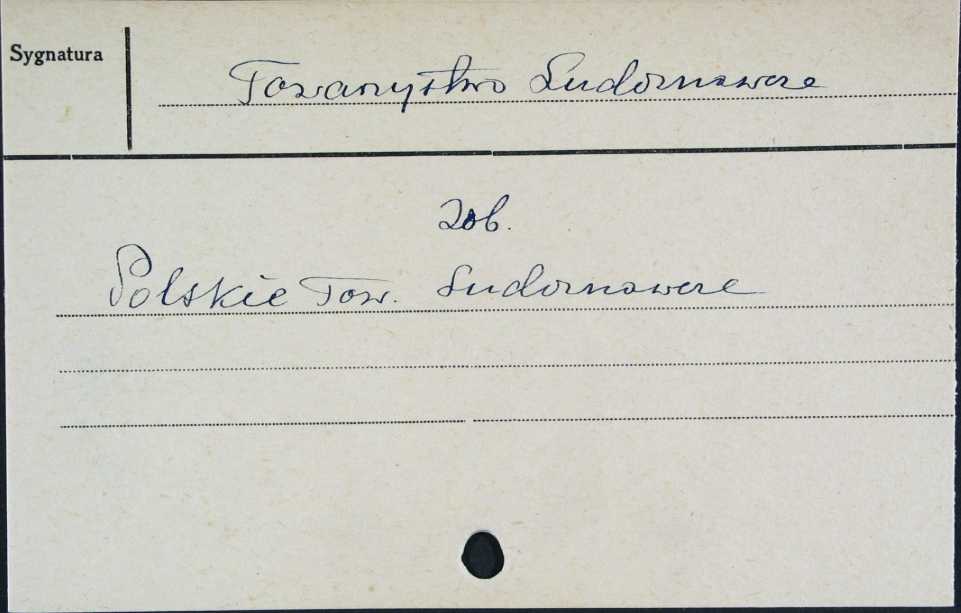 Sygnatura
Towarzystwo Ludoznawcze
Zob.
Polskie Tow. Ludoznawcze